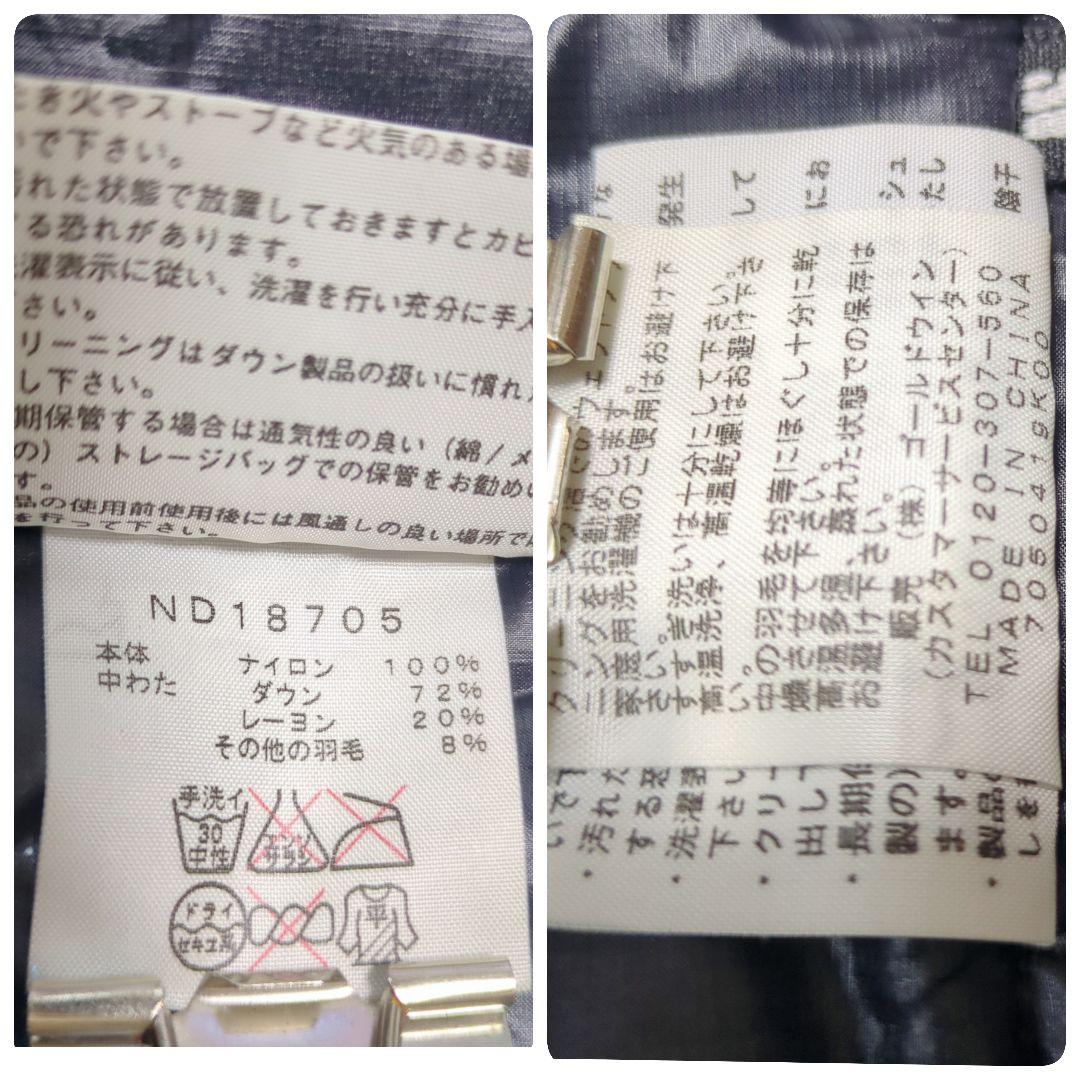 き火やストーブなど火気のある場
いで下さい。
汚れた状態で放置しておきますとカビ
る恐れがあります。
洗濯表示に従い、洗濯を行い充分に手入
さい。
リーニングはダウン製品の扱いに慣れ
し下さい。
期保管する場合は通気性の良い（綿/メ
の）ストレージバッグでの保管をお勧めい
す。
品の使用前使用後には風通しの良い場所で
を行って下さい。
ND18705
本体 ナイロン 100%
中わた ダウン 72%
レーヨン 20%
その他の羽毛 8%
手洗イ
30
中性
エンソ
サラシ
ドライ
セキユ系
平
発生
して
にお
シュ
たし
陰干
クリーニングをお勧めします。
家庭用洗濯機のご使用はお避け下
さい。
すすぎ洗いは十分にして下さい。
高温洗浄、高温乾燥はお避け下さ
い。
中の羽毛を均等にほぐし十分に乾
燥させて下さい。
高温多湿、蒸れた状態での保存は
お避け下さい。
販売 (株) ゴールドウイン
(カスタマーサービスセンター)
TEL 0120-307-560
MADE IN CHINA
7050419K00
いで下
・汚れた
する恐
・洗濯表
下さい
・クリー
出し下
・長期保
製の)
ます。
・製品の
しを行